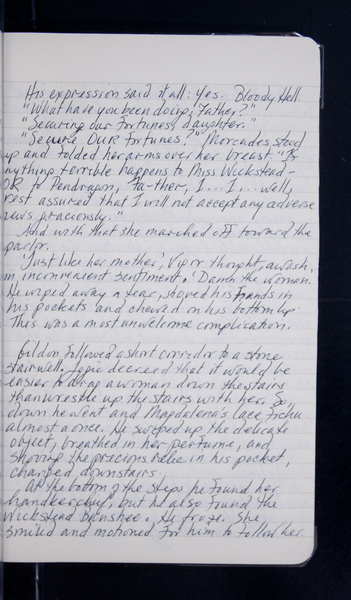 His expression said it all: Yes. Bloody Hell.
"What have you been doing, Father?"
"Securing our Fortunes, daughter."
"Secure OUR Fortunes?" Mercades stood
up and folded her arms over her breast. "If
anything terrible happens to Miss Wickstead -
OR to Pendragon, Fa-ther, I... I... well,
rest assured that I will not accept any adverse
news graciously."
And with that she marched off toward the
parlor.
'Just like her mother,' Vipor thought, awash
in inconvenient sentiment. 'Damn the woman.'
He wiped away a tear, shoved his hands in
his pockets and chewed on his bottom lip.
This was a most unwelcome complication.
Gildon followed a short corridor to a stone
stairwell. Logic decreed that it would be
easier to drag a woman down the stairs
than wrestle up the stairs with her. So,
down he went and Magdalena's lace fichu
almost at once. He swiped up the delicate
object, breathed in her perfume, and
shoving the precious relic in his pocket,
charged downstairs.
At the bottom of the steps he found her
handkerchief, but he also found the
Wickstead Banshee. He froze. She
smiled and motioned for him to follow her.